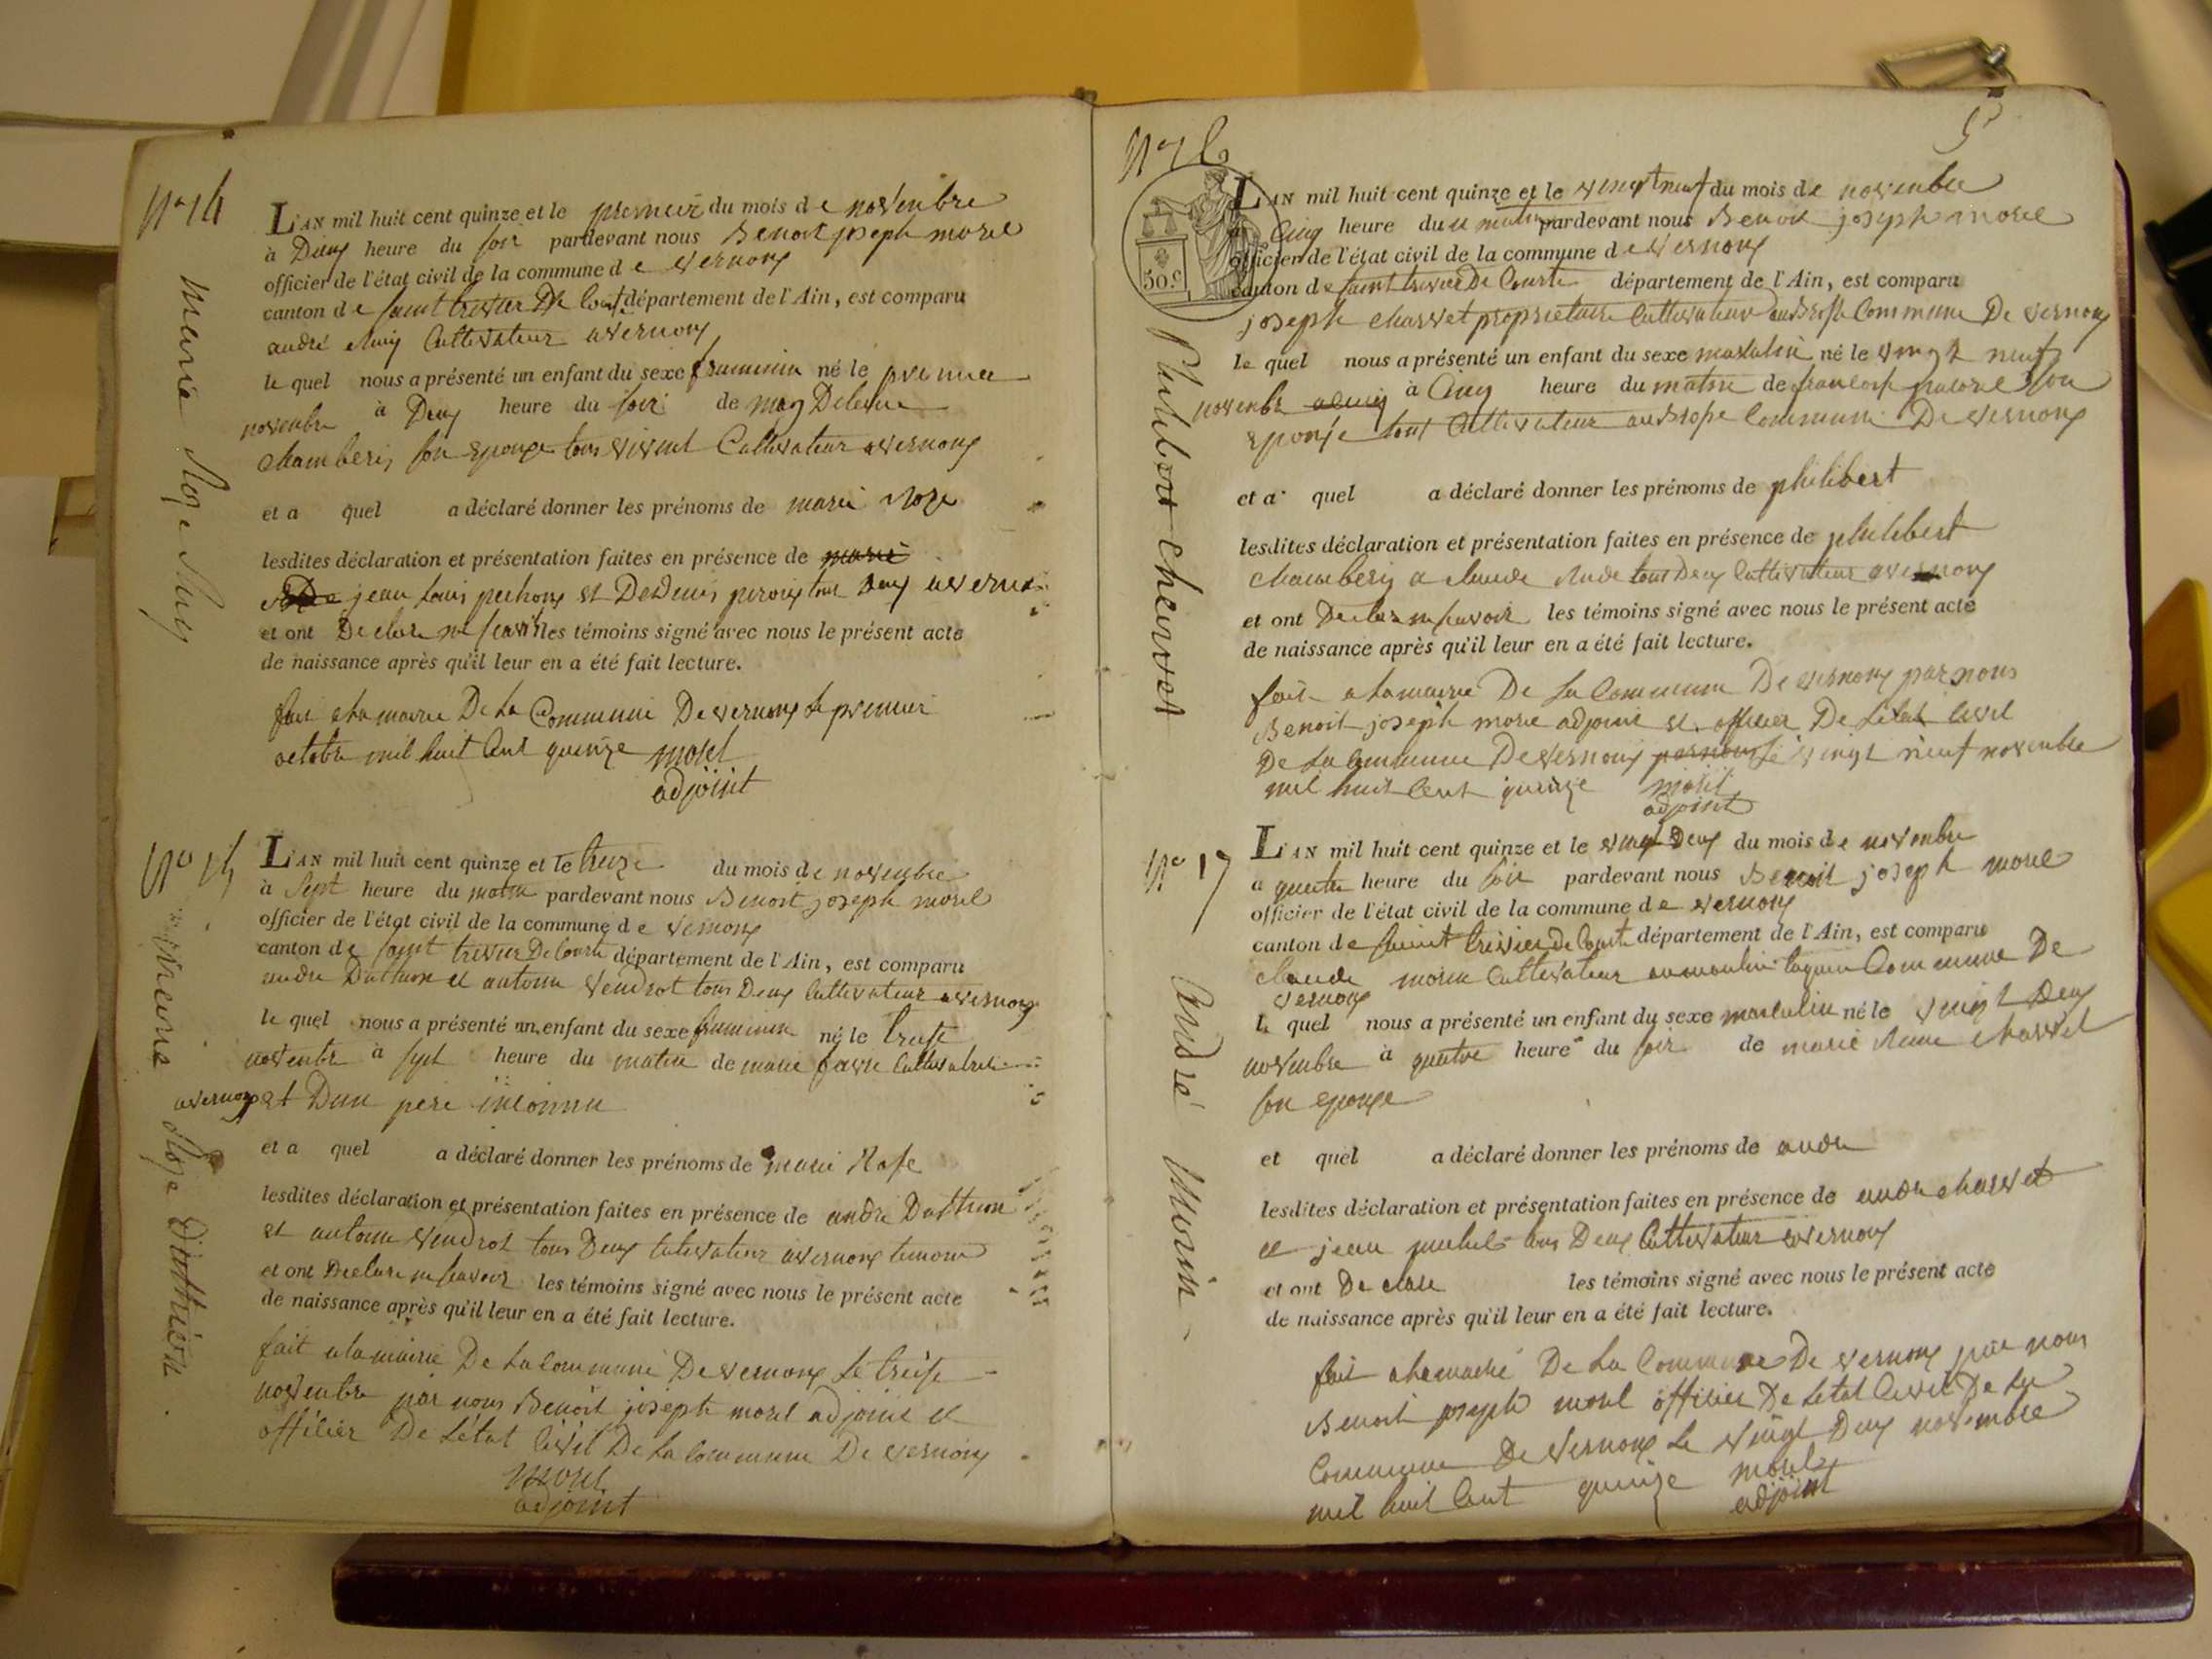 N° 14
Marie Roze
L'AN mil huit cent quinze et le premier du mois de novembre
à Deux heure du soir pardevant nous Benoit joseph morel
officier de l'état civil de la commune de vernoux
canton de saint trivier De Court département de l'Ain, est comparu
andré Cultivateur a vernoux
le quel nous a présenté un enfant du sexe feminin né le premier
novembre à Deux heure du soir de
chambery son epouze tous Cultivateur a vernoux
et a quel a déclaré donner les prénoms de marie Roze
lesdites déclaration et présentation faites en présence de marie
jean Louis et tout Deux a vernoux
et ont Declare ne scavoir les témoins signé avec nous le présent acte
de naissance après qu'il leur en a été fait lecture.
fait a la mairie De la Commune De vernoux le premier
octobre mil huit Cent quinze morel
adjoint
N° 15
Marie Roze Duthion
L'AN mil huit cent quinze et le treize du mois de novembre
à sept heure du matin pardevant nous Benoit joseph morel
officier de l'état civil de la commune de vernoux
canton de saint trivier De Courte département de l'Ain, est comparu
andre Duthion et antoine vendrot tous Deux Cultivateur a vernoux
le quel nous a présenté un enfant du sexe feminin né le treise
novembre à sept heure du matin de marie favre Cultivatrice
a vernoux et Dun pere inconnu
et a quel a déclaré donner les prénoms de marie Rose
lesdites déclaration et présentation faites en présence de andre Duthion
et antoine vendrot tous Deux Cultivateur a vernoux temoin
et ont Declare ne scavoir les témoins signé avec nous le présent acte
de naissance après qu'il leur en a été fait lecture.
fait a la mairie De la Commune De vernoux le treise
novembre par nous Benoit joseph morel adjoint et
officier De Létat Civil De la Commune De vernoux
morel
adjoint
5
N° 16
50.c
Philibert charvet
L'AN mil huit cent quinze et le vingt neuf du mois de novembre
à Cinq heure du matin pardevant nous Benoit joseph morel
officier de l'état civil de la commune de vernoux
canton de saint trivier De Courte département de l'Ain, est comparu
joseph charvet proprietaire Cultivateur au Commune De vernoux
le quel nous a présenté un enfant du sexe masculin né le vingt neuf
novembre à Cinq heure du matin de son
epouse tout Cultivateur au Commune De vernoux
et a quel a déclaré donner les prénoms de philibert
lesdites déclaration et présentation faites en présence de philibert
chambery a claude tous Deux Cultivateur a vernoux
et ont Declare ne scavoir les témoins signé avec nous le présent acte
de naissance après qu'il leur en a été fait lecture.
fait a la mairie De La Commune De vernoux par nous
Benoit joseph morel adjoint et officier De Létat Civil
De La Commune De vernoux par nous le vingt neuf novembre
mil huit Cent quinze morel
adjoint
N° 17
André Morin
L'AN mil huit cent quinze et le vingt Deux du mois de novembre
à quatre heure du soir pardevant nous Benoit joseph morel
officier de l'état civil de la commune de vernoux
canton de saint trivier de Courte département de l'Ain, est comparu
claude morin Cultivateur au moulin Commune De
vernoux
le quel nous a présenté un enfant du sexe masculin né le vingt Deux
novembre à quatre heure du soir de marie charvet
son epouze
et quel a déclaré donner les prénoms de andre
lesdites déclaration et présentation faites en présence de andre charvet
et jean michel tous Deux Cultivateur a vernoux
et ont Declare les témoins signé avec nous le présent acte
de naissance après qu'il leur en a été fait lecture.
fait a la mairie De La Commune De vernoux par nous
Benoit joseph morel officier De Létat Civil De La
Commune De vernoux Le vingt Deux novembre
mil huit Cent quinze morel
adjoint